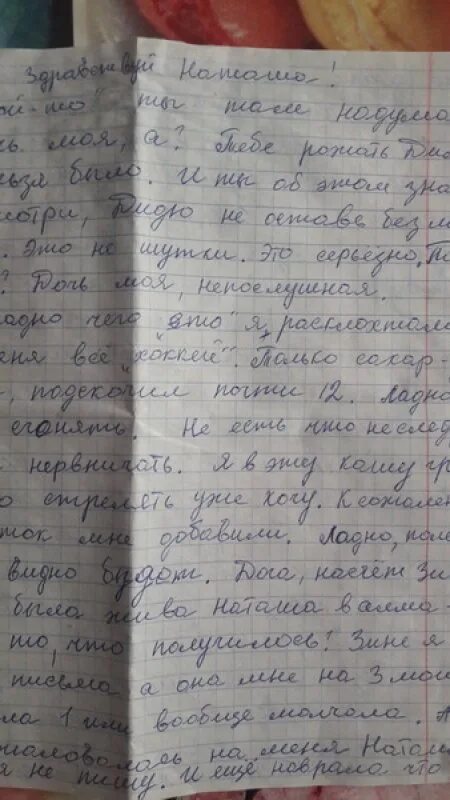 Здравствуй Наташа!
ой-то" ты там надума
ь моя, а? Тебе рожать Дид
льзя было. И ты об этом зна
мотри, Дидю не оставь без м
. Это не шутки. Это серьёзно. Т
? Дочь моя, непослушная.
адно чего "это" я, расклохтала
еня всё "хоккей". Только сахар-
, подскочил почти 12. Ладно
сгонять. Не есть что не след
нервничать. Я в эту кашу гр
о стрелять уже хочу. К сожален
ток мне добавили. Ладно, пол
видно будет. Дога, насчёт Зи
была жива Наташа в алма-
то, что получилось! Зине я
письма а она мне на 3 мои
ла 1 или вообще молчала. А
жаловалась на меня Наташ
я не пишу. И ещё наврала что